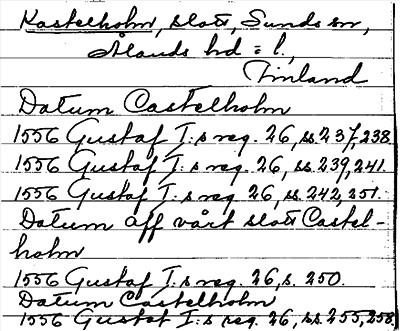 Kastelholm, slott, Sunds sn,
Ålands hd = l.,
Finland
Datum Castelholm
1556 Gustaf I:s reg. 26, ss. 237, 238.
1556 Gustaf I:s reg. 26, ss. 239, 241.
1556 Gustaf I:s reg. 26, ss. 242, 251.
Datum aff vårt slott Castel-
holm
1556 Gustaf I:s reg. 26, s. 250.
Datum Castelholm
1556 Gustaf I:s reg. 26, ss. 255, 258